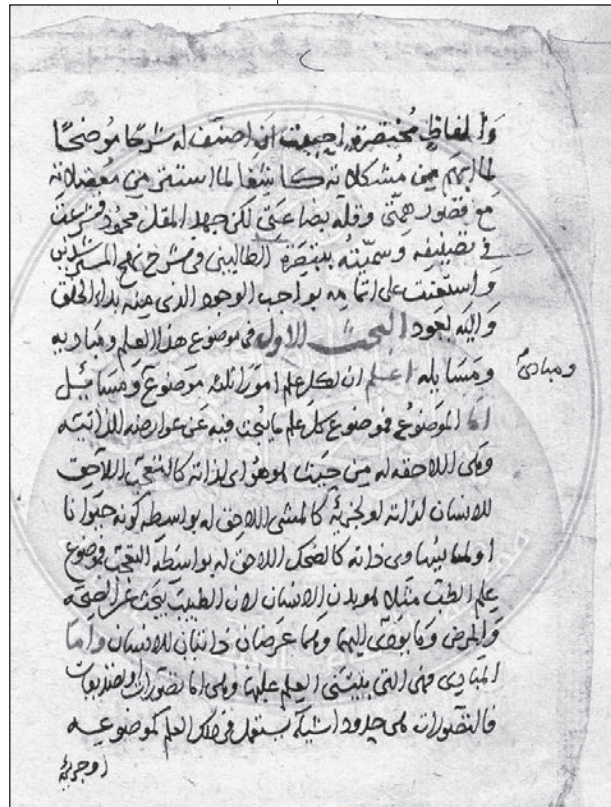 ٢
وألفاظٍ مختصرةٍ، احببت ان اصنف له شرحًا مُوضحًا
لما ابهم من مُشكلاته كاشفا لما استتر من معضلاته
مع قصور همتي وقلة بضاعتي لكن جهد المقل محمود فشرعت
في تصنيفه وسميته بتبصرة الطالبين في شرح نهج المسترشدين
واستعنت على اتمامه بواجب الوجود الذي منه بداء الخلق
واليه يعود البحث الاول في موضوع هذا العلم ومباديه
ومسايله اعلم ان لكل علم امورا ثلثه موضوع ومسائيل
ومبادئ
اما الموضوع فموضوع كل علم ما يبحث فيه عن عوارضه الذاتيه
وهى اللاحقه له من حيث هو هو اى لذاته كالتعجب اللاحق
للانسان لذاته او لجزئه كالمشى اللاحق له بواسطه كونه حيوانا
او لما يساوى ذاته كالضحك اللاحق له بواسطه التعجب فموضوع
علم الطب مثلا هو بدن الانسان لان الطبيب يبحث عن الصحه
والمرض وما يؤدى اليهما وهما عرضان ذاتيان للانسان واما
المبادى فهى التى يبتنى العلم عليها وهى اما تصورات او تصديقات
فالتصورات هى حدود اشياء يستعمل فى ذلك العلم كموضوعه
او جزئه